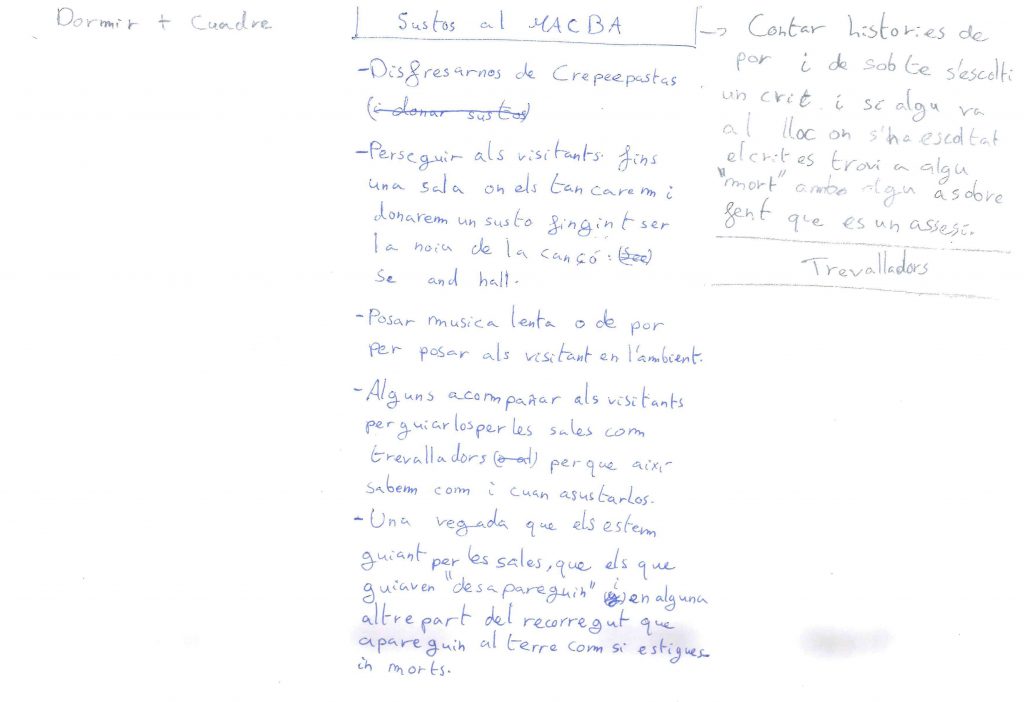 Dormir + Cuadre
Sustos al MACBA
-Disfresarnos de Crepeepastas
(i donar sustos)
-Perseguir als visitants. fins
una sala on els tancarem i
donarem un susto fingint ser
la noia de la cançó: (See)
Se and hall.
-Posar musica lenta o de por
per posar als visitant en l'ambient.
-Alguns acompañar als visitants
per guiarlos per les sales com
trevalladors (o al) per que així
sabem com i cuan asustarlos.
- Una vegada que els estem
guiant per les sales, que els que
guiaven "desapareguin" i en alguna
altre part del recorregut que
apareguin al terre com si estigues-
in morts.
-> Contar histories de
por i de sobte s'escolti
un crit. i si algu va
al lloc on s'ha escoltat
el crit es trovi a algu
"mort" amb algu a sobre
fent que es un assesí.
Trevalladors